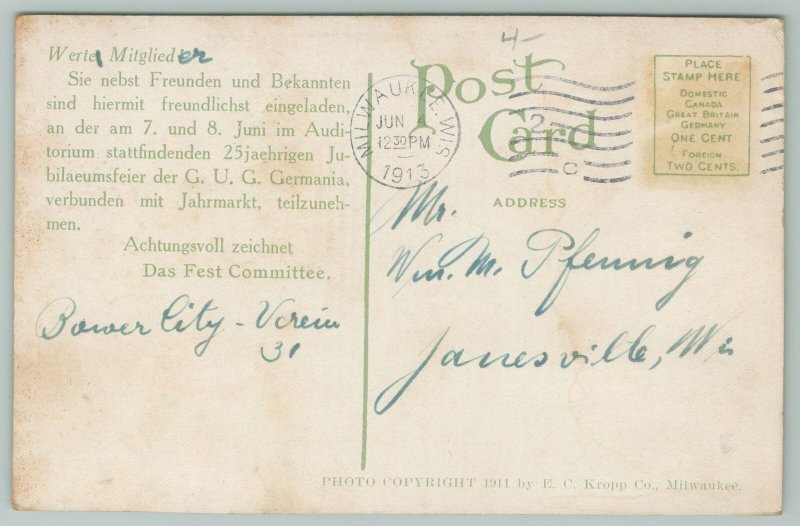 Werte Mitglieder
Sie nebst Freunden und Bekannten
sind hiermit freundlichst eingeladen,
an der am 7. und 8. Juni im Audi-
torium stattfindenden 25jaehrigen Ju-
bilaeumsfeier der G. U. G. Germania,
verbunden mit Jahrmarkt, teilzuneh-
men.
Achtungsvoll zeichnet
Das Fest Committee.
Bower City - Verein
31
4-
Post
Card
MILWAUKEE, WIS.
JUN 4
12 30 PM
1913
2
C
PLACE
STAMP HERE
DOMESTIC
CANADA
GREAT BRITAIN
GERMANY
ONE CENT
FOREIGN
TWO CENTS.
ADDRESS
Mr.
Wm. M. Pfennig
Janesville, Wis
PHOTO COPYRIGHT 1911 by E. C. Kropp Co., Milwaukee.